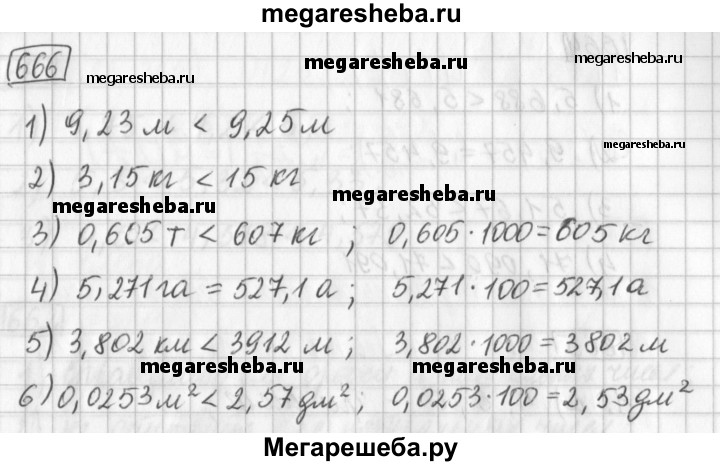 megaresheba.ru
666
megaresheba.ru megaresheba.ru
1) 9,23 м < 9,25 м
megaresheba.ru
2) 3,15 кг < 15 кг
megaresheba.ru megaresheba.ru
3) 0,605 т < 607 кг ; 0,605 · 1000 = 605 кг
4) 5,271 га = 527,1 а ; 5,271 · 100 = 527,1 а
5) 3,802 км < 3912 м ; 3,802 · 1000 = 3802 м
megaresheba.ru megaresheba.ru
6) 0,0253 м² < 2,57 дм² ; 0,0253 · 100 = 2,53 дм²
Мегарешеба.ру